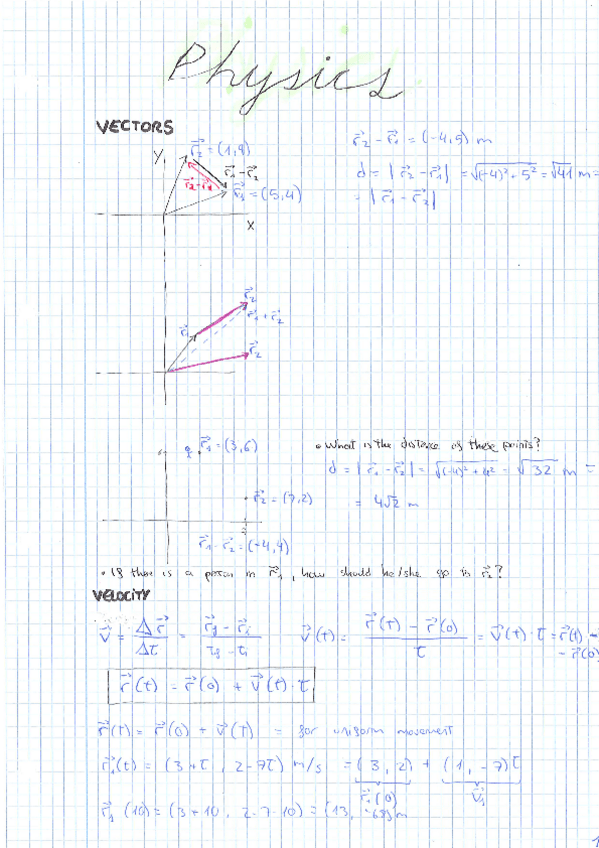 Physics
VECTORS
Y
r⃗₂ = (1,9)
r⃗₁ - r⃗₂
r⃗₂ - r⃗₁
r⃗₁ = (5,4)
X
r⃗₂ - r⃗₁ = (-4,5) m
d = | r⃗₂ - r⃗₁ | = √(-4)² + 5² = √41 m =
= | r⃗₁ - r⃗₂ |
r⃗₂
r⃗₁
r⃗₁ + r⃗₂
r⃗₂
6
r⃗₁ = (3,6)
r⃗₂ = (7,2)
r⃗₁ - r⃗₂ = (-4,4)
• What is the distance of these points?
d = | r⃗₁ - r⃗₂ | = √(-4)² + 4² = √32 m =
= 4√2 m
• If there is a person in r⃗₁, how should he/she go in r⃗₂?
VELOCITY
v⃗ = Δr⃗ / Δt = r⃗f - r⃗i / tf - ti
v⃗(t) = r⃗(t) - r⃗(0) / t = v⃗(t) · t = r⃗(t) -
- r⃗(0)
r⃗(t) = r⃗(0) + v⃗(t) · t
r⃗(t) = r⃗(0) + v⃗(t) = for uniform movement
r⃗₁(t) = (3+t, 2-7t) m/s = (3, 2) + (1, -7)t
r⃗₁(0) v⃗₁
r⃗₁(10) = (3+10, 2-7·10) = (13, -68) m
1